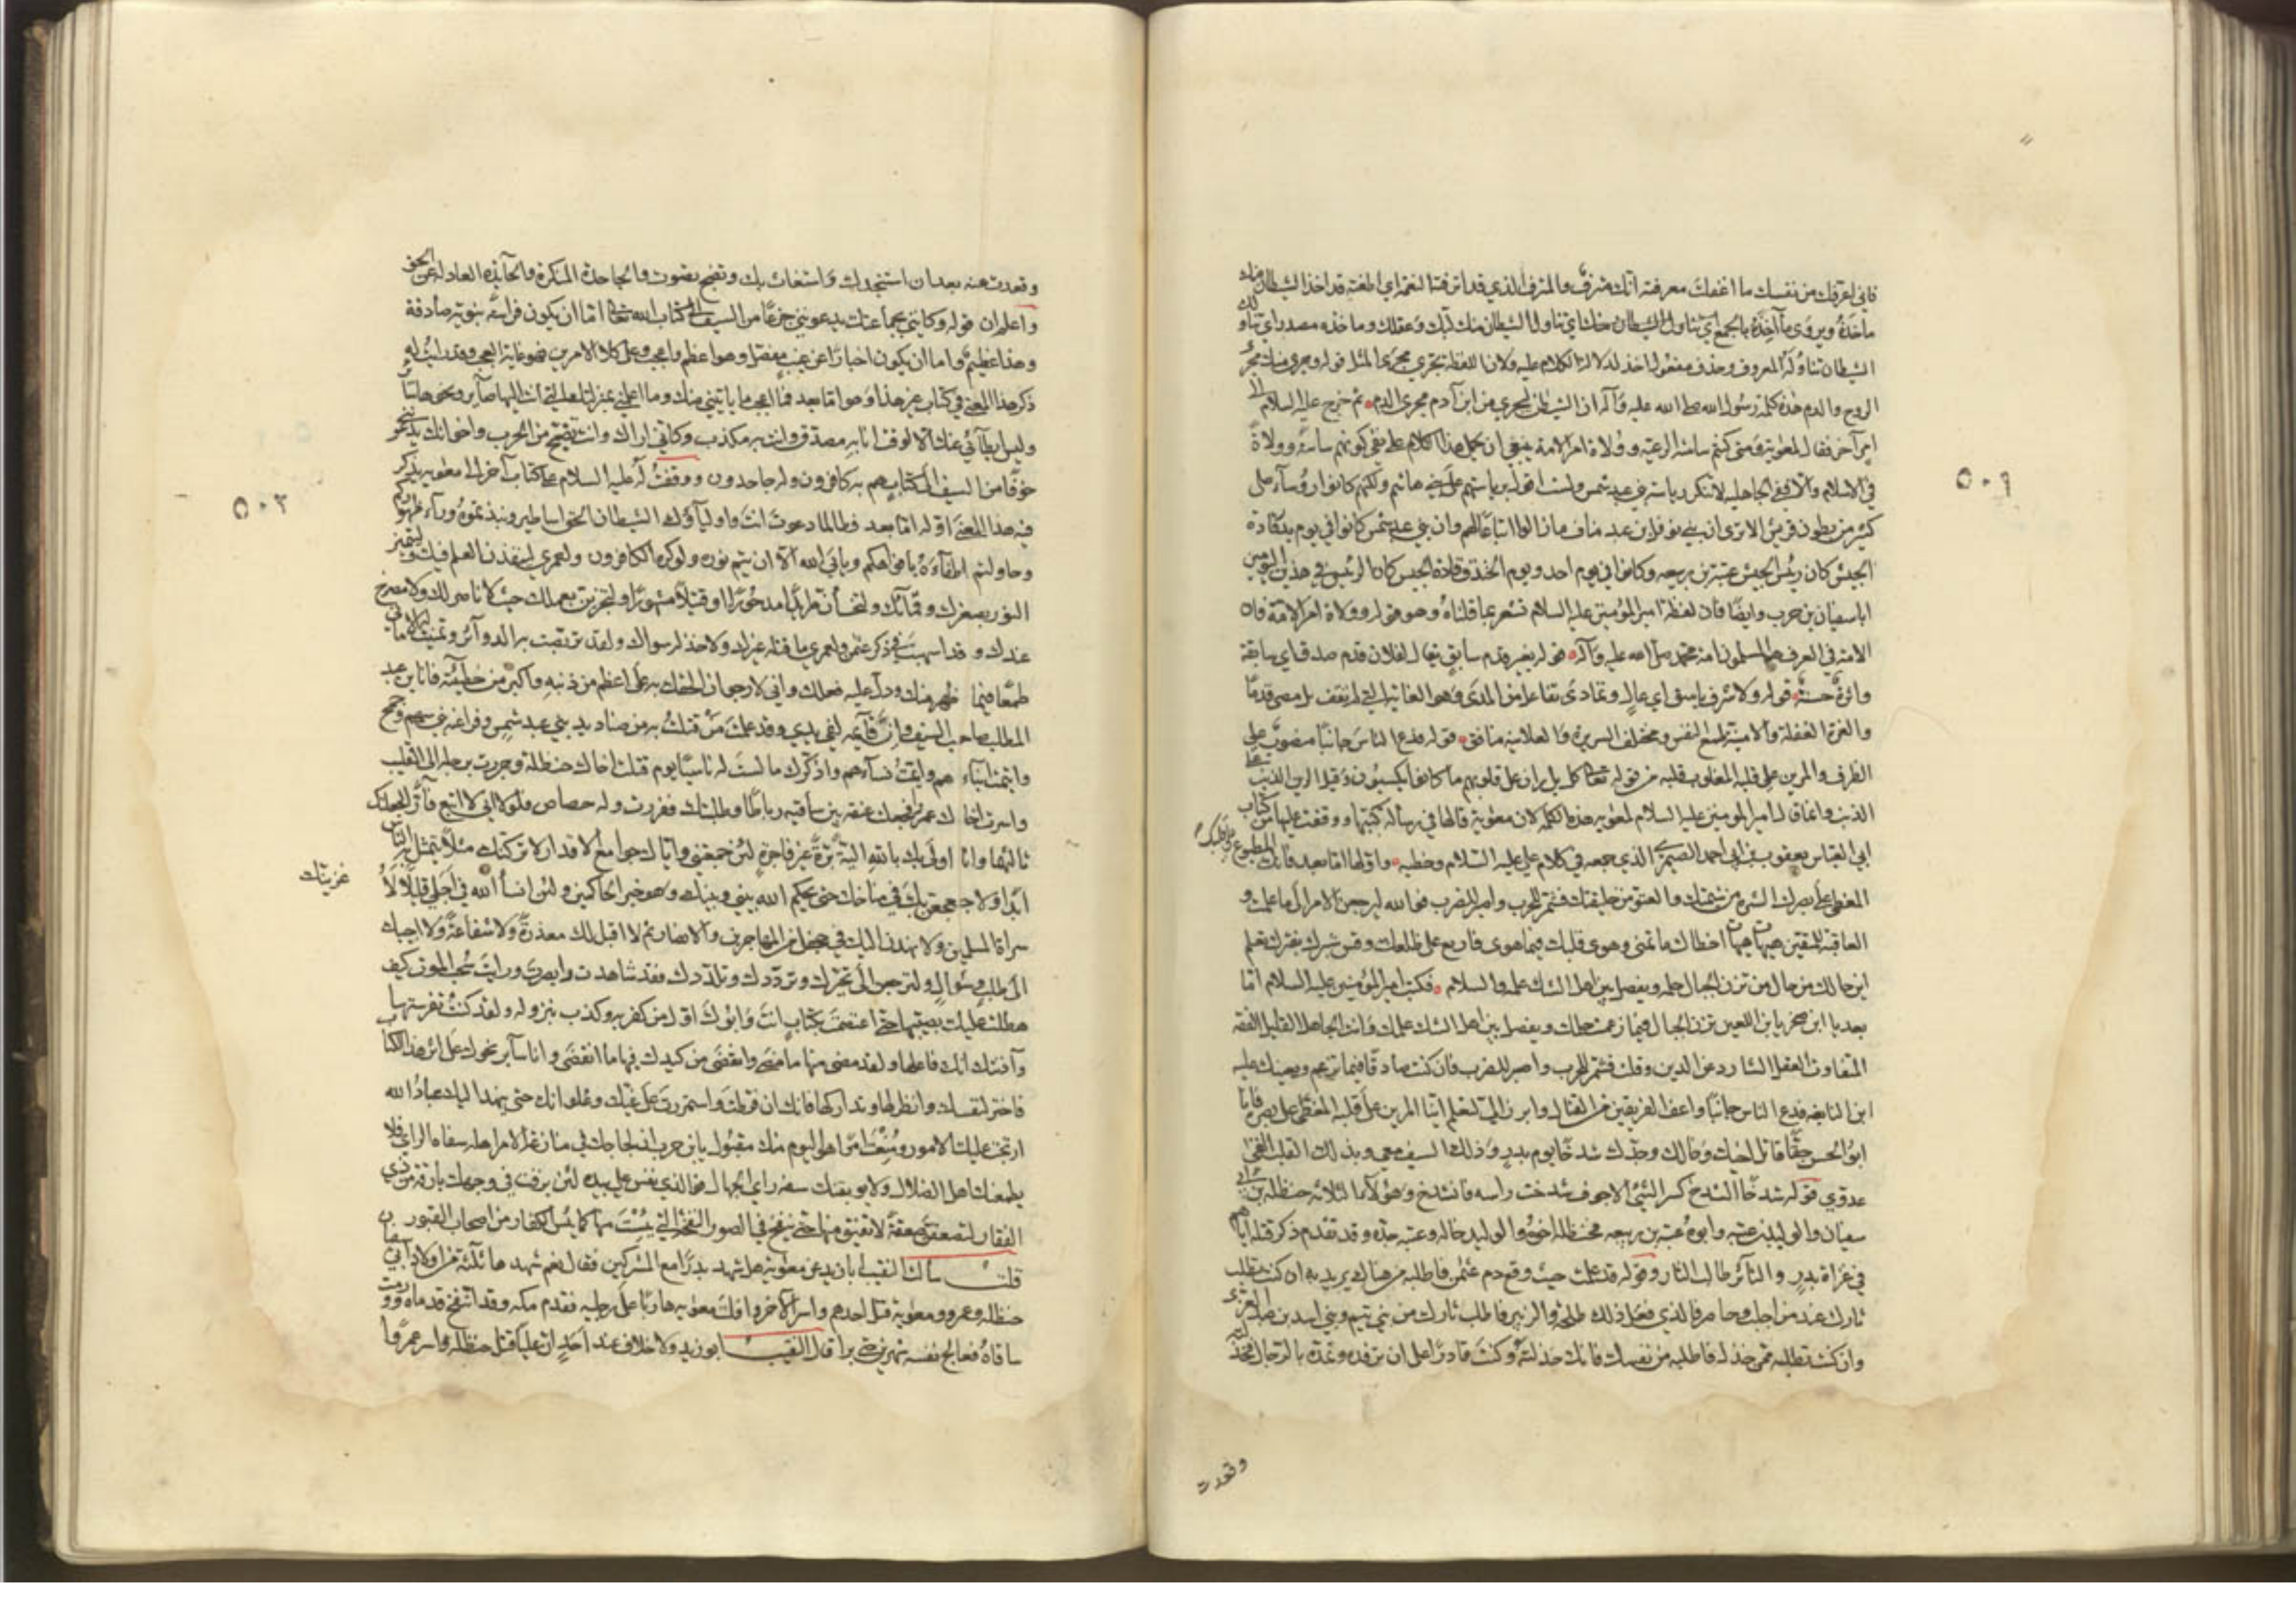 فاني اعرفك من نفسك ما اغفلك معرفته انك مترف والمترف الذي قد اترفته النعمة اي اطغته قد اخذ الشيطان منك
ماخذه ويروى مآخذه بالجمع اي تناول الشيطان منك لبك وعقلك وماخذه مصدر اي تناولك
الشيطان تناوله المعروف وحذف مفعول اخذ لدلالة الكلام عليه ولان اللفظة تجري مجرى المثل قوله وجرى منك مجرى
الروح والدم هذه كلمة رسول الله صلى الله عليه وآله ان الشيطان ليجري من ابن آدم مجرى الدم ثم خرج عليه السلام الى
امر آخر فقال لمعوية ومتى كنتم ساسة الرعية وولاة امر الامة ينبغي ان يحمل هذا الكلام على نفي كونهم ساسة وولاة
في الاسلام والا ففي الجاهلية لا تنكر رياسة بني عبد شمس ولست اقول برياستهم على بني هاشم ولكنهم كانوا رؤساء على
كثير من بطون قريش الا ترى ان بني نوفل بن عبد مناف ما زالوا اتباعا لهم وان بني عبد شمس كانوا في يوم بدر قادة
الجيش كان رئيس الجيش عتبة بن ربيعه وكانوا في يوم احد ويوم الخندق قادة الجيش كان الرئيس في هذين اليومين
ابا سفيان بن حرب وايضا فان لفظة امير المؤمنين عليه السلام تشعر بما قلناه وهو قوله وولاة امر الامة فان
الامة في العرف هم المسلمون امة محمد صلى الله عليه وآله قوله بغير قدم سابق يقال لفلان قدم صدق اي سابقة
واثرة حسنة قوله ولا شرف باسق اي عال وتمادى تفاعل من المدى وهو الغاية اي لم تقف بل مضى قدما
والغرة الغفلة والامنية طمع النفس ومختلف السريرة والعلانية منافق قوله فدع الناس جانبا منصوب على
الظرف والمرين على قلبه المغلوب قلبه من قوله تعالى كلا بل ران على قلوبهم ما كانوا يكسبون وقيل الرين الذنب على
الذنب وانما قال امير المؤمنين عليه السلام لمعوية هذه الكلمة لان معوية قالها في رسالة كتبها ووقفت عليها من كتاب
ابي العباس يعقوب بن ابي احمد الصيمري الذي جمعه في كلام علي عليه السلام وخطبه واولها اما بعد فانك المطبوع على قلبك
المغطى على بصرك الشر من شيمتك والعتو من خليقتك فشمر للحرب واصبر للضرب فوالله ليرجعن الامر الى ما علمت و
العاقبة للمتقين هيهات هيهات اخطاك ما تمنى وهوى قلبك فيما هوى فاربع على ظلعك وقس شبرك بفترك تعلم
اين حالك من حال من تزن الجبال حلمه ويفصل بين اهل الشك علمه والسلام فكتب امير المؤمنين عليه السلام اما
بعد يا ابن صخر يا بن اللعين تزن الجبال فيما زعمت حلمك ويفصل بين اهل الشك علمك وانت الجاهل القليل الفقه
المتفاوت العقل الشارد عن الدين وقلت فشمر للحرب واصبر للضرب فان كنت صادقا فيما تزعم ويعينك عليه
ابن النابغة فدع الناس جانبا واعف الفريقين من القتال وابرز الي لتعلم اينا المرين على قلبه المغطى على بصره فانا
ابو الحسن حقا قاتل اخيك وخالك وجدك شدخا يوم بدر وذلك السيف معي وبذلك القلب القى
عدوي قوله شدخا الشدخ كسر الشيء الاجوف شدخت راسه فانشدخ وهؤلاء الثلاثة حنظلة بن ابي
سفيان والوليد بن عتبه وابوه عتبه بن ربيعه فحنظلة اخوه والوليد خاله وعتبه جده وقد تقدم ذكر قتله اياهم
في غزاة بدر والثائر طالب الثار وقوله قد علمت حيث وقع دم عثمن فاطلبه من هناك يريد به ان كنت تطلب
ثارك عند من اجلب وحاصر فالذي فعل ذلك طلحة والزبير فاطلب ثارك من بني تيم وبني اسد بن عبد العزى
وان كنت تطلبه ممن خذل فاطلبه من نفسك فانك خذلته وكنت قادرا على ان ترفده وتمده بالرجال فخذلته
٥٠٩
وقعدت
وقعدت عنه بعد ان استنجدك واستغاث بك وتضج تصوت والجاحدة المنكرة والحآيدة العادلة عن الحق
واعلم ان قوله وكاني بجماعتك يدعونني جزعا من السيف الى كتاب الله تعالى اما ان يكون فراسة نبوية صادقة
وهذا عظيم واما ان يكون اخبارا عن غيب مفصل وهو اعظم واعجب وعلى كلا الامرين فهو غاية العجب وقد رايت له
ذكر هذا المعنى في كتاب غير هذا وهو اما بعد فما اعجب ما ياتيني منك وما اعلمني بمنزلتك التي انت اليها صآير ونحوها سائر
وليس ابطآئي عنك الا لوقت انا به مصدق وانت به مكذب وكاني اراك وانت تضج من الحرب واخوانك يدعونني
خوفا من السيف الى كتاب هم به كافرون وله جاحدون ووقفت له عليه السلام على كتاب آخر الى معويه يذكر
فيه هذا المعنى اوله اما بعد فطالما دعوت انت واوليآؤك اولياء الشيطان الحق اساطير ونبذتموه ورآء ظهوركم
وحاولتم اطفآءه بافواهكم ويابى الله الا ان يتم نوره ولو كره الكافرون ولعمري لينفذن العلم فيك وليتمن
النور بصغرك وقمآتك ولتخسأن طريدا مدحورا او قتيلا مثبورا ولتجزين بعملك حيث لا ناصر لك ولا مصرخ
عندك وقد اسهبت في ذكر عثمن ولعمري ما قتله غيرك ولا خذله سواك ولقد تربصت به الدوآئر وتمنيت له الاماني
طمعا فيما ظهر منك ودل عليه فعلك واني لارجو ان الحقك به على اعظم من ذنبه واكبر من خطيئته فانا ابن عبد
المطلب صاحب السيف وان قآئمه لفي يدي وقد علمت من قتلت به من صناديد بني عبد شمس وفراعنة بني سهم وجمح
وايتمت ابناءهم وايمت نسآءهم واذكرك ما لست له ناسيا يوم قتلت اخاك حنظلة وجررت برجله الى القليب
واسرت اخاك عمرا فجعلت عنقه بين ساقيه رباطا وطلبتك ففررت وله حصاص فلولا اني لا اتبع فآرا لجعلتك
ثالثهما وانا اولى لك بالله الية برة غير فاجرة لئن جمعتني واياك جوامع الاقدار لاتركنك مثلا يتمثل به الناس
ابدا ولاجعجعن بك في مناخك حتى يحكم الله بيني وبينك وهو خير الحاكمين ولئن انسأ الله في اجلي قليلا لاغزينك
غزينك
سراة المسلمين ولانهدن اليك في جحفل من المهاجرين والانصار ثم لا اقبل لك معذرة ولا شفاعة ولا اجيبك
الى طلب وسؤال ولترجعن الى تحيرك وترددك وتلددك فقد شاهدت وابصرت ورايت سحب الموت كيف
هطلت عليك بصيبها حتى اعتصمت بكتاب انت وابوك اول من كفر به وكذب بنزوله ولقد كنت تفرستها
وآذنتك انك فاعلها ولقد مضى منها ما مضى وانقضى من كيدك فيها ما انقضى وانا سآير نحوك على اثر هذا الكتاب
فاختر لنفسك وانظر لها وتداركها فانك ان فرطت واستمررت على غيك وغلوائك حتى ينهد اليك عباد الله
ارتجت عليك الامور ومنعت امرا هو اليوم منك مقبول يا بن حرب ان لجاجك في منازعة الامر اهله سفاه الراي فلا
يطمعنك اهل الضلال ولا يوبقنك سفه راي الجهال فوالذي نفس علي بيده لئن برقت في وجهك بارقة من ذي
الفقار لتصعقن صعقة لا تفيق منها حتى ينفخ في الصور النفخة التي يئست منها كما يئس الكفار من اصحاب القبور
قلت سالت النقيب ابا زيد عن معوية هل شهد بدرا مع المشركين فقال نعم شهدها ثلاثة من اولاد ابي سفيان
حنظله وعمرو ومعوية قتل احدهم واسر الآخر وافلت معويه هاربا على رجليه فقدم مكه وقد انتفخ قدماه وورمت
ساقاه فعالج نفسه شهرين حتى برا قال النقيب ابو زيد ولا خلاف عند احد ان عليا قتل حنظله واسر عمرا
٥٠٣